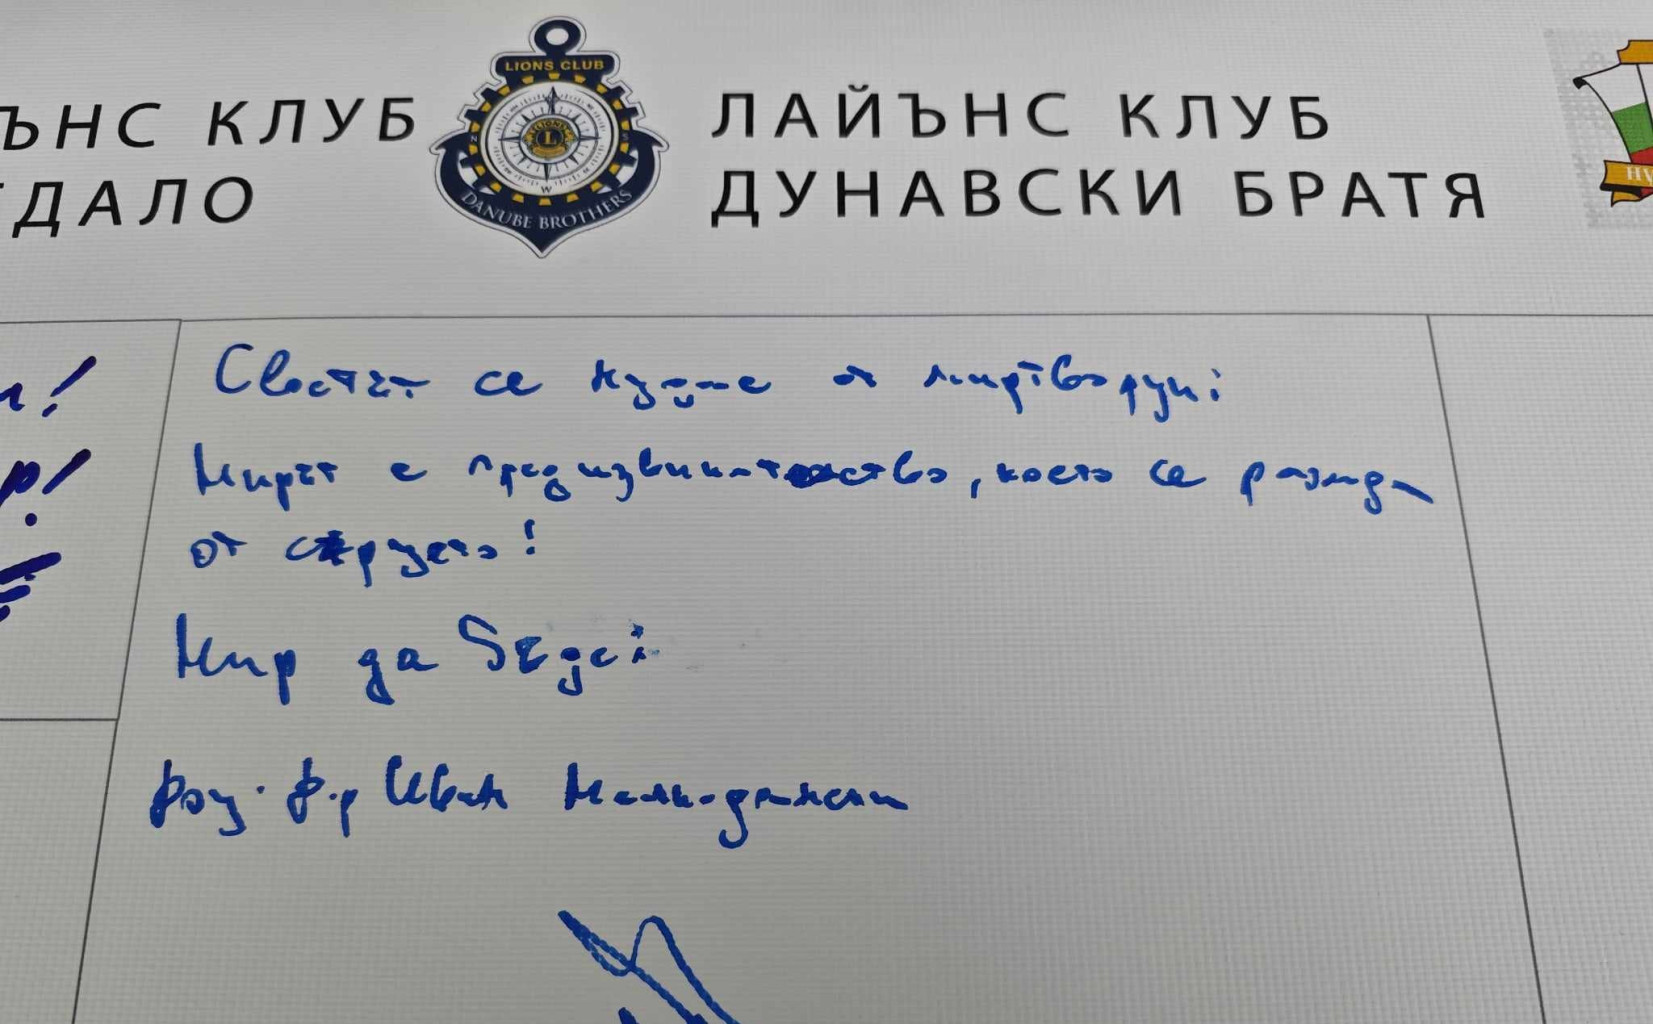 ЪНС КЛУБ
ДАЛО
LIONS CLUB
LIONS
L
W
DANUBE BROTHERS
ЛАЙЪНС КЛУБ
ДУНАВСКИ БРАТЯ
Светът се нуждае от миротворци!
Мирът е предизвикателство, което се ражда
от сърцето!
Мир да бъде!
Иван